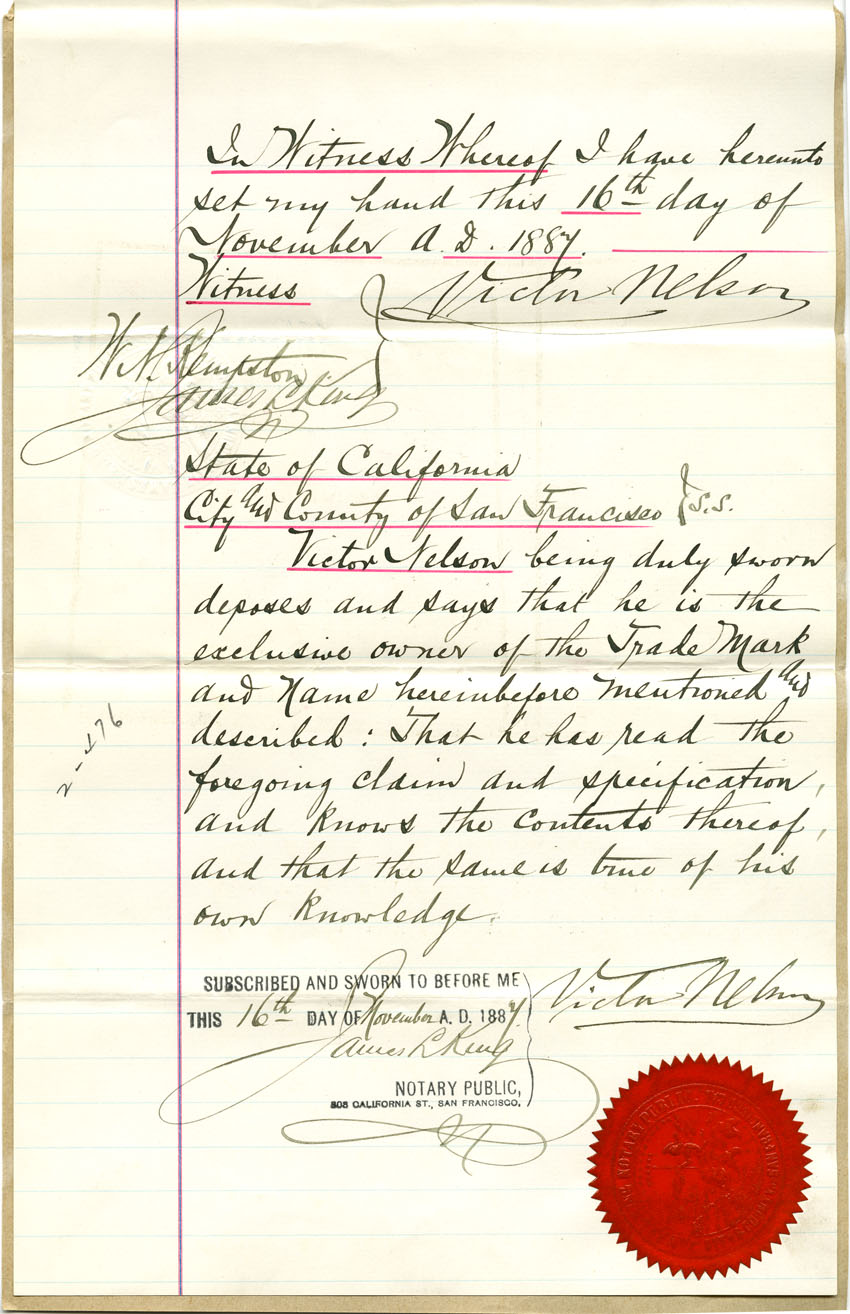 In Witness Whereof I have hereunto
set my hand this 16th day of
November A.D. 1887.
Witness
Victor Nelson
James L King
State of California
City and County of San Francisco } S.S.
Victor Nelson being duly sworn
deposes and says that he is the
exclusive owner of the Trade Mark
and Name hereinbefore mentioned and
described : That he has read the
foregoing claim and specification,
and knows the contents thereof,
and that the same is true of his
own knowledge.
SUBSCRIBED AND SWORN TO BEFORE ME
THIS 16th DAY OF November A. D. 1887
Victor Nelson
James L King
NOTARY PUBLIC,
CALIFORNIA ST., SAN FRANCISCO.
NOTARY PUBLIC